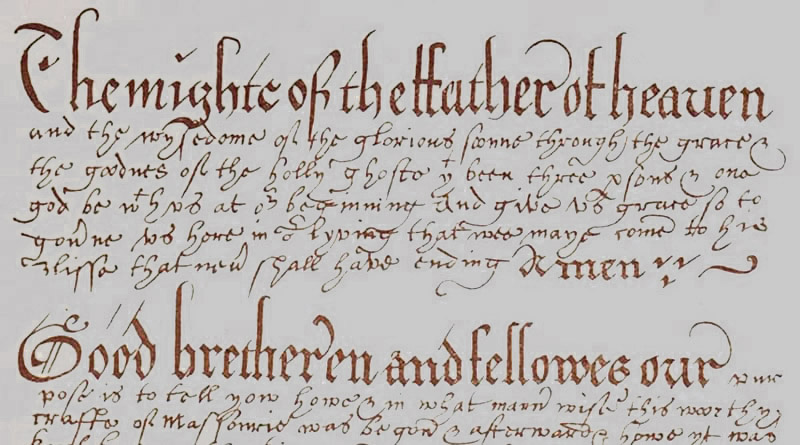 The mighte of the ffather of heaven
and the wysedome of the glorious sonne through the grace &
the goodnes of the holly ghoste yt been three psons & one
god be wth vs at or beginning and give vs grace so to
gou'ne vs here in or lyving that wee maye come to his
blisse that neu' shall have ending Amen
Good bretheren and fellowes our pur
pose is to tell yow howe & in what man'r wise this worthy
craffte of Massonrie was begon & afterward & howe yt was